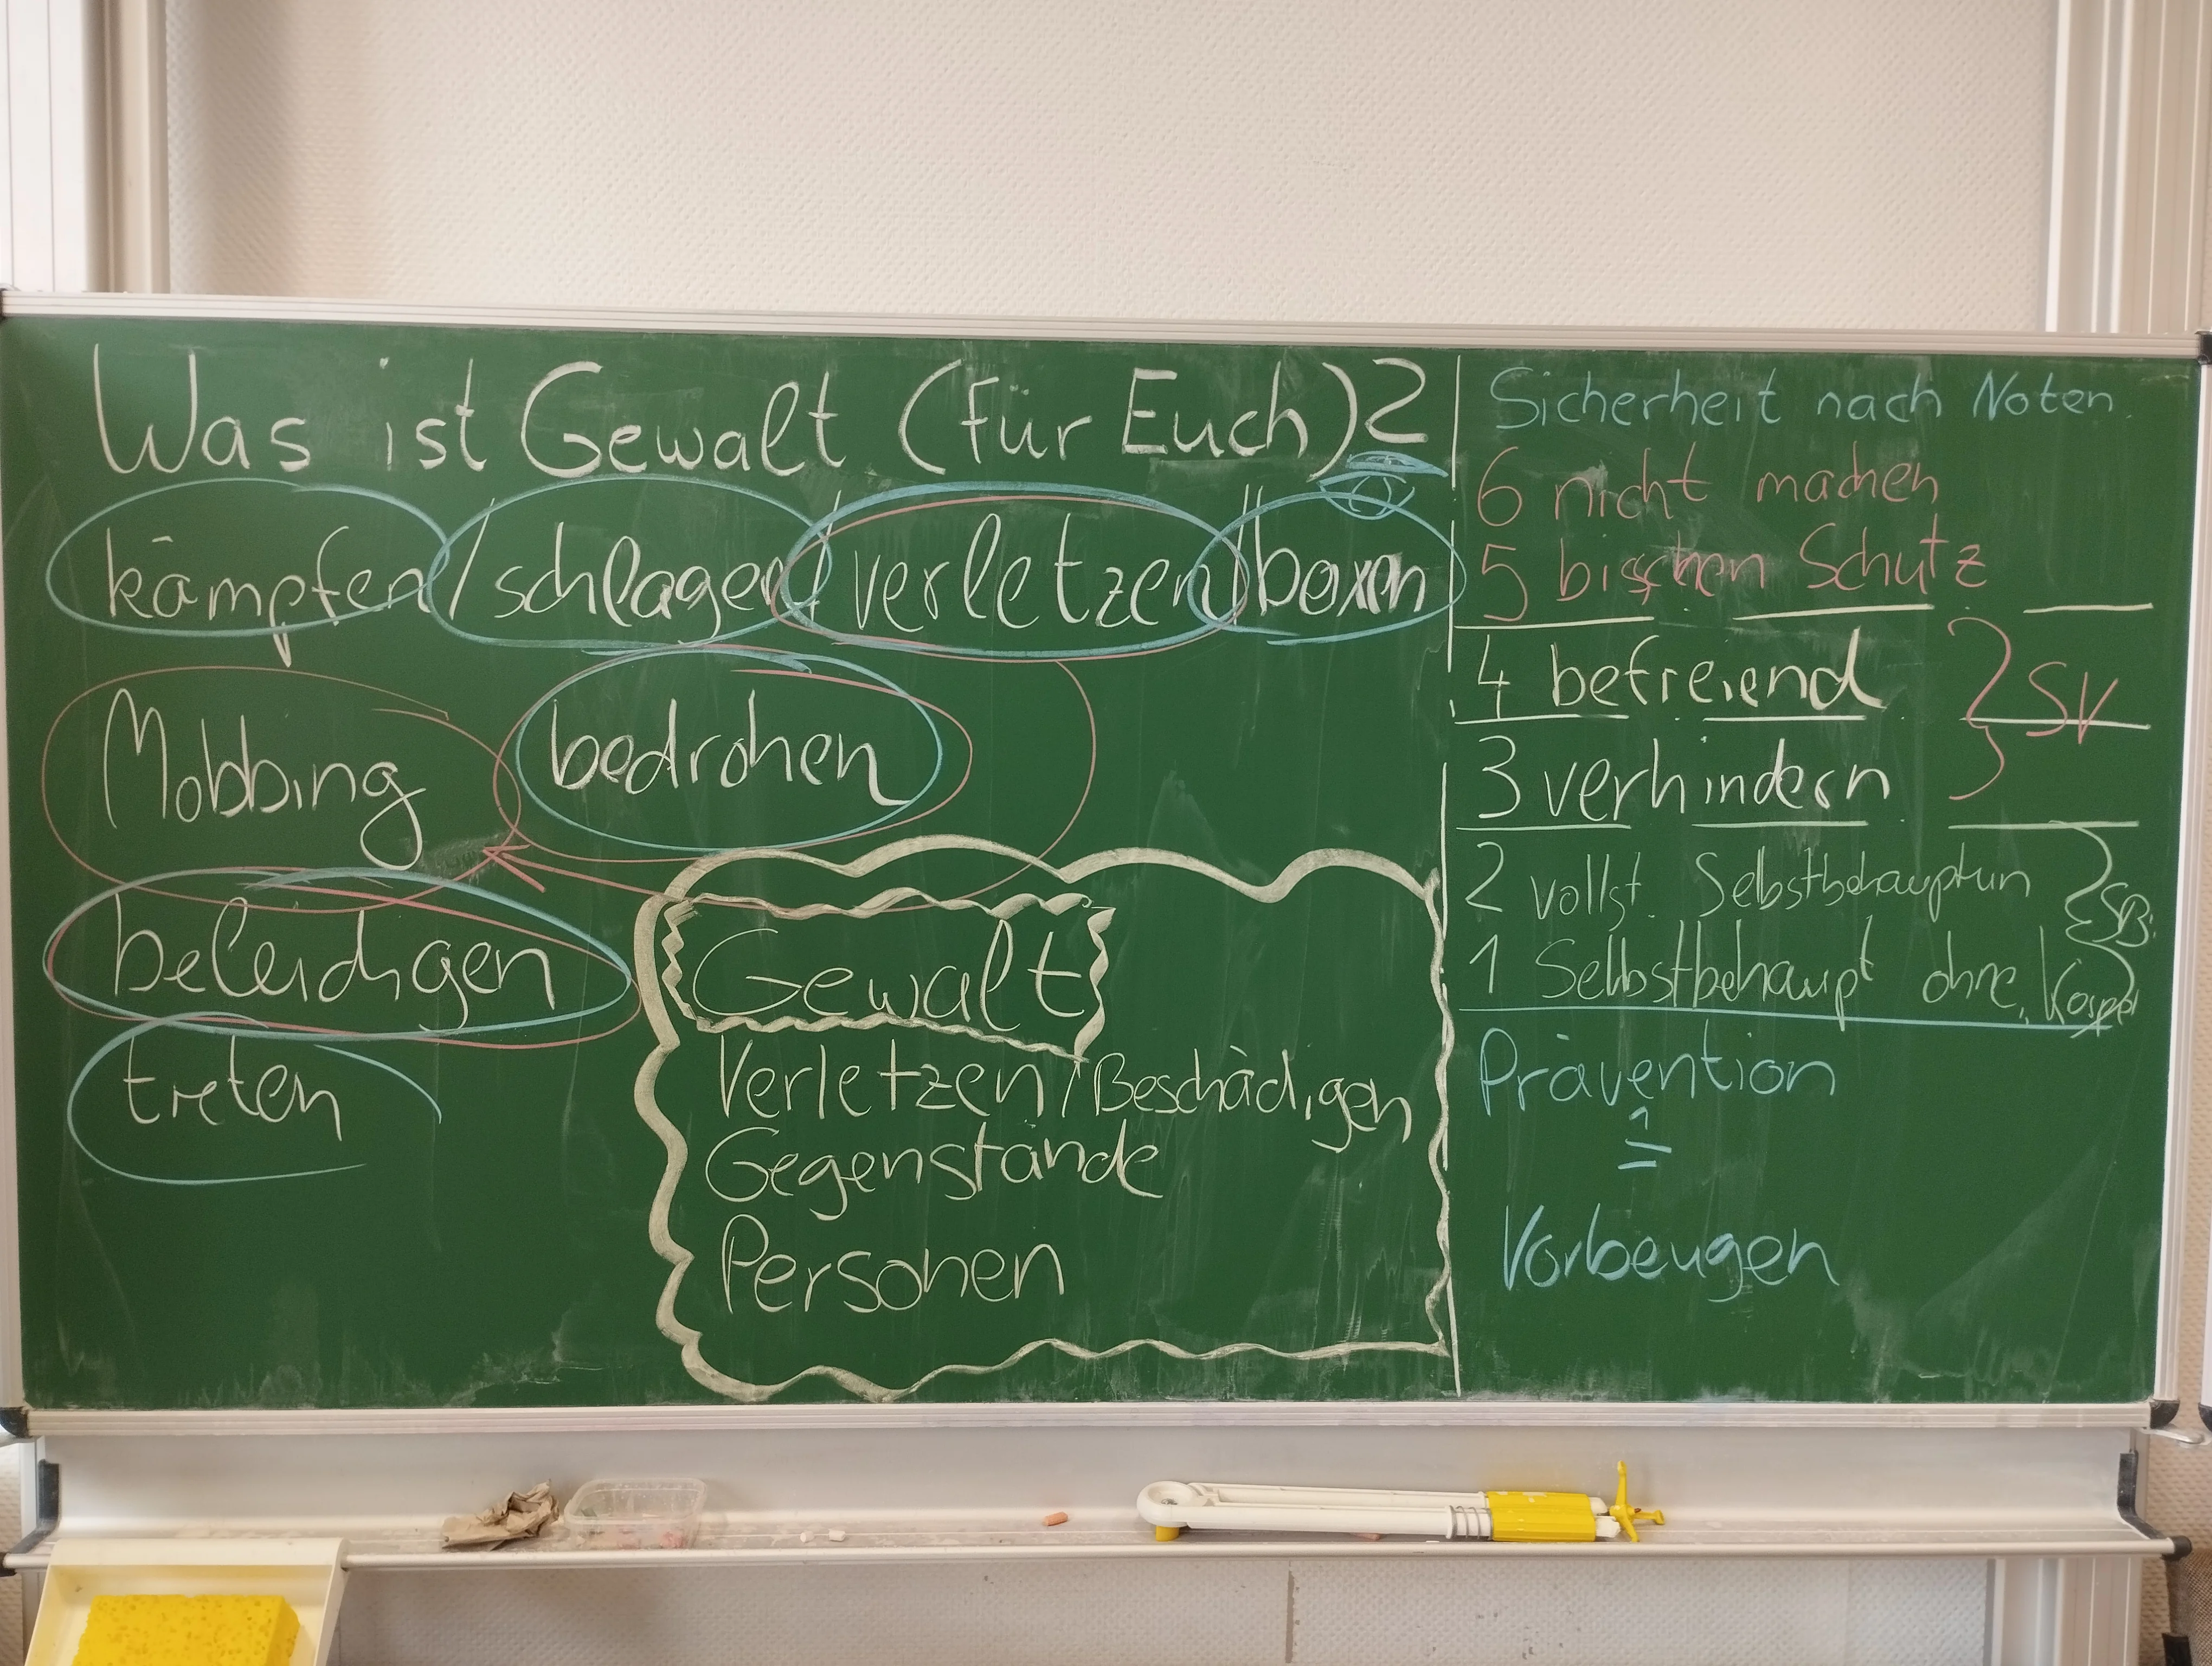 Was ist Gewalt (für Euch)?
kämpfen / schlagen / verletzen / boxen
Mobbing bedrohen
beleidigen
treten
Gewalt
Verletzen / Beschädigen
Gegenstände
Personen
Sicherheit nach Noten
6 nicht machen
5 bisschen Schutz
4 befreiend
3 verhindern
} SV
2 vollst. Selbstbehauptun
1 Selbstbehaupt ohne Körper
} SB.
Prävention
≙
Vorbeugen